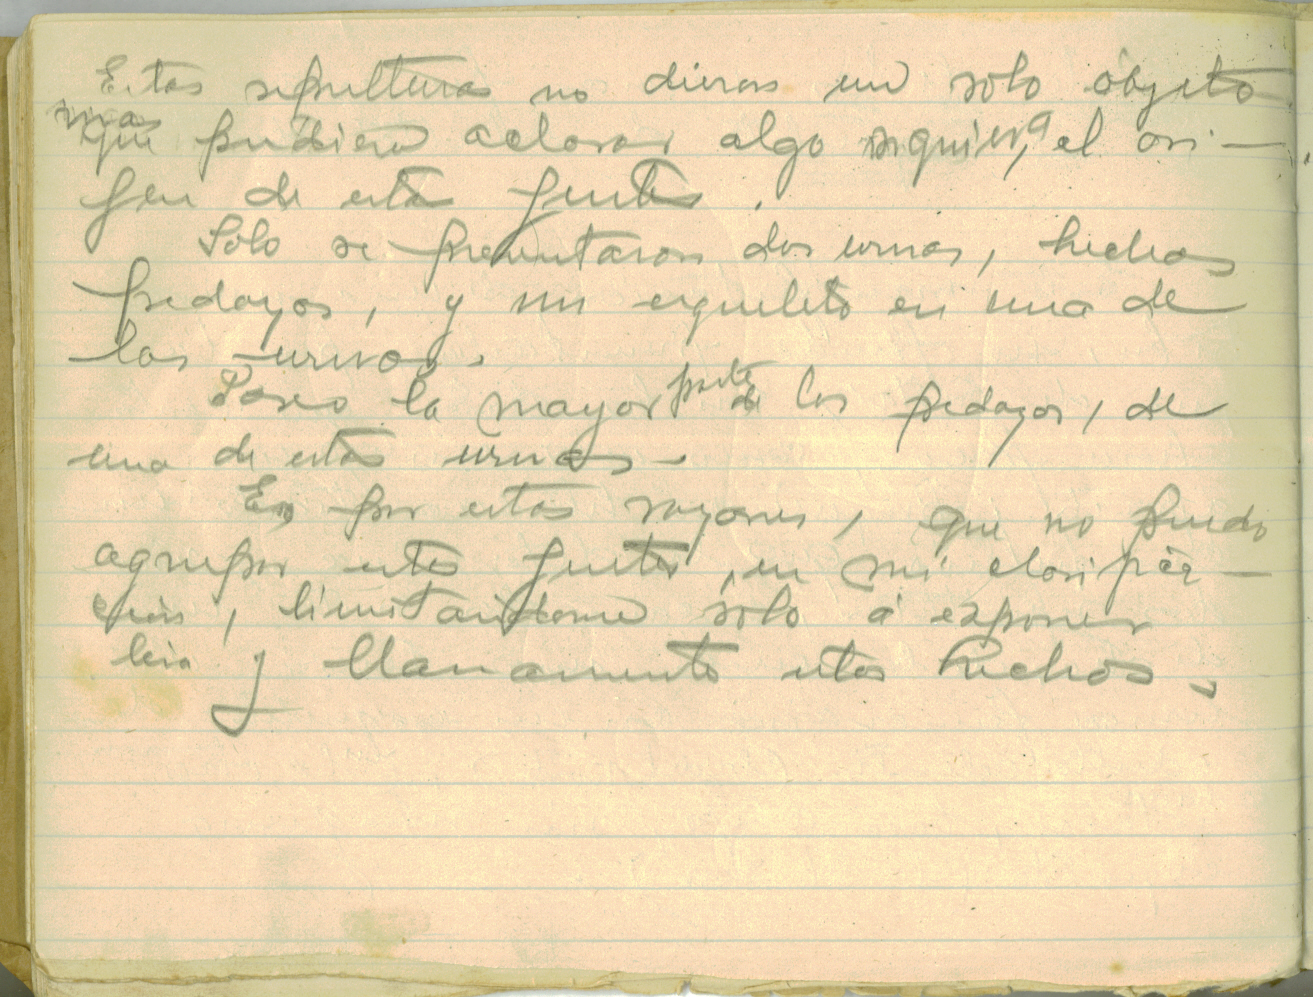 Estas sepulturas no dieron un solo objeto
mas
que pudiera aclarar algo siquiera, el ori-
gen de esta gente.
Solo se presentaron dos urnas, hechas
pedazos, y un esqueleto en una de
las urnas.
Poseo la mayor parte de los pedazos, de
una de estas urnas.
Es por estas razones, que no puedo
agrupar esta gente, en mi clasifica-
ción, limitandome solo á exponer
lisa y llanamente estos hechos.